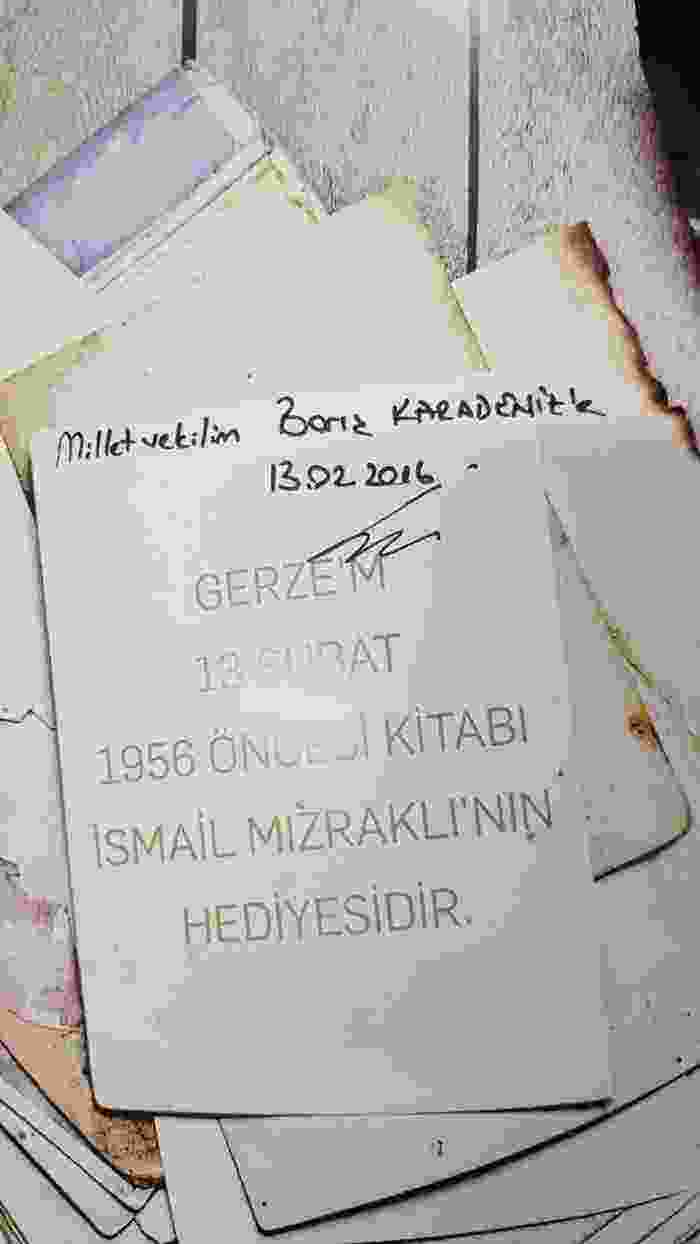 Milletvekilim Barış KARADENİZ'e
13.02.2016
GERZE'M
13 ŞUBAT
1956 ÖNCESİ KİTABI
İSMAİL MIZRAKLI'NIN
HEDİYESİDİR.